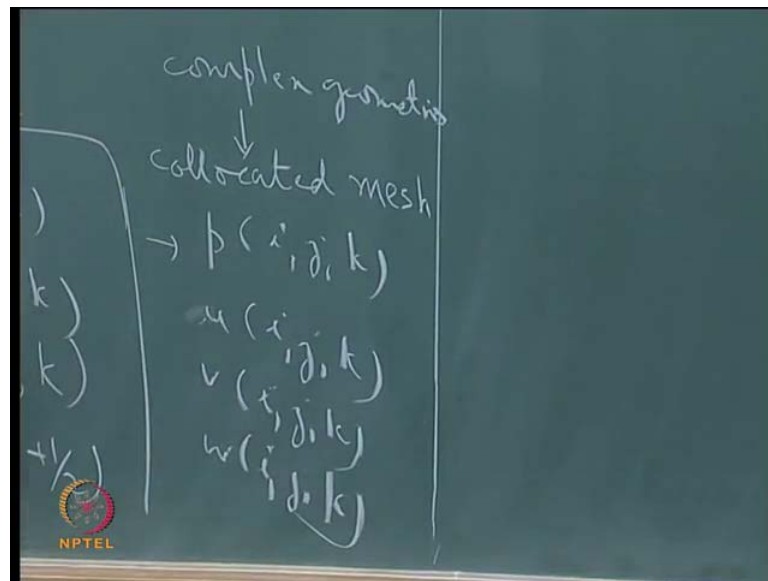 complex geometries
↓
collocated mesh
→ p(i, j, k)
u(i, j, k)
v(i, j, k)
w(i, j, k)
)
k)
, k)
+1/2)
NPTEL